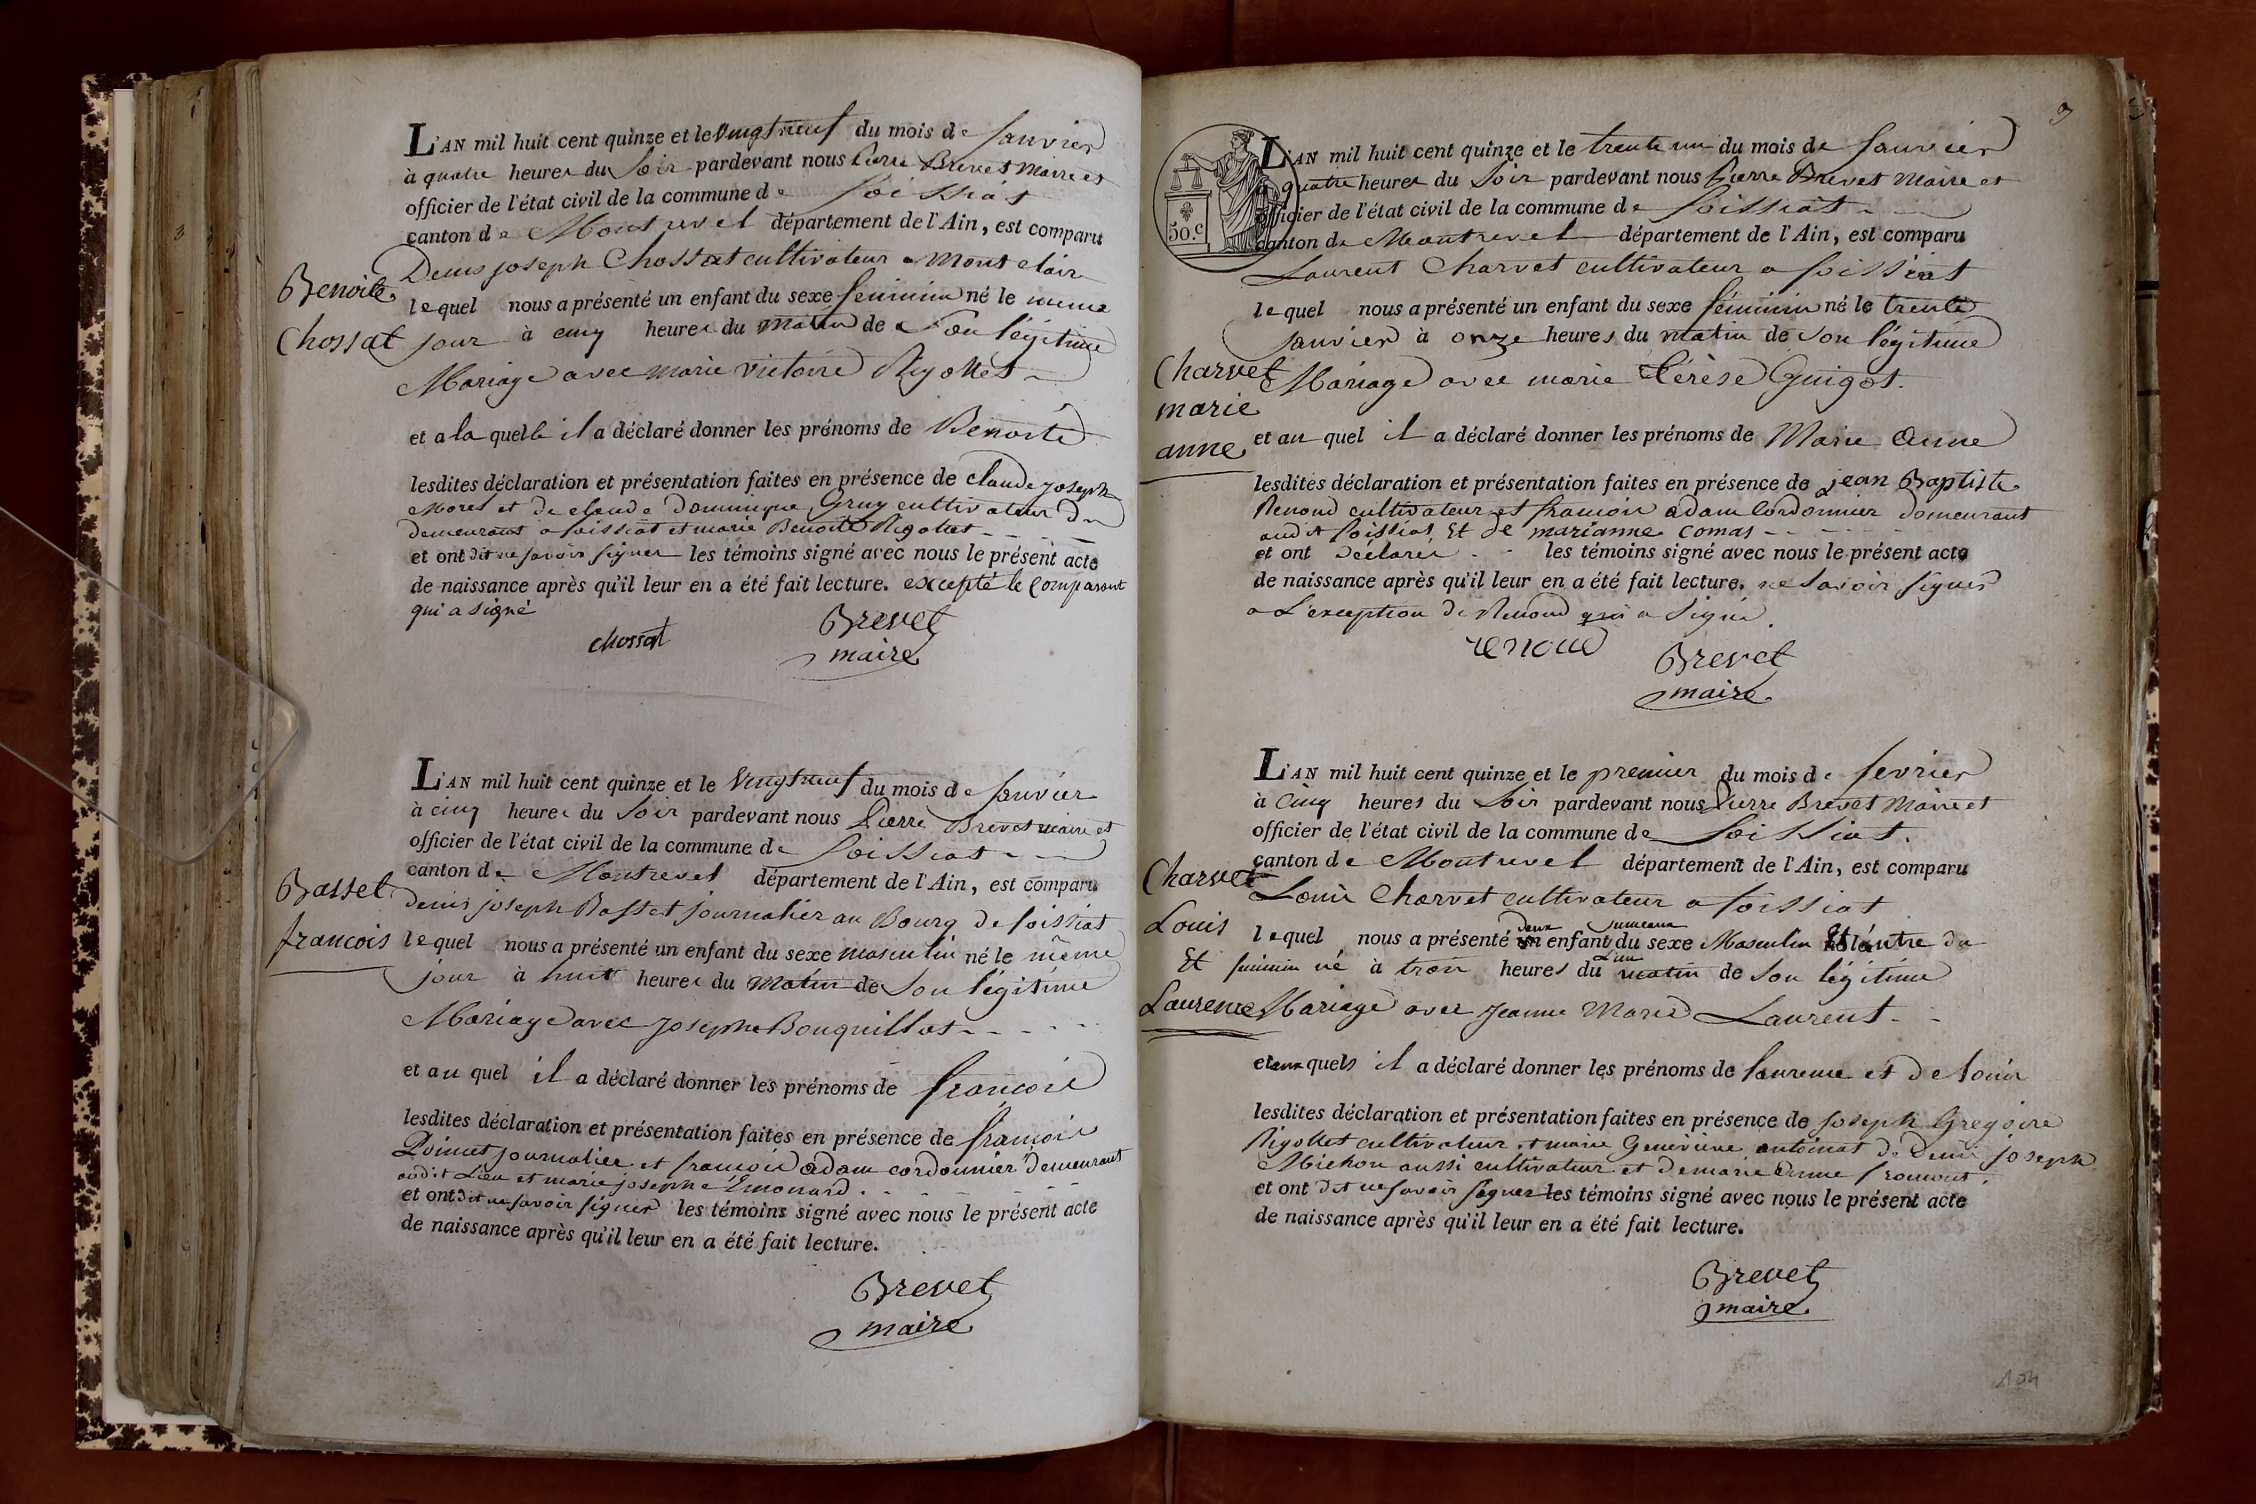 L'AN mil huit cent quinze et le vingt neuf du mois de Janvier
à quatre heures du Soir pardevant nous Pierre Brevet Maire et
officier de l'état civil de la commune de foissiat
canton de Montrevel département de l'Ain, est comparu
Denis joseph Chossat cultivateur a Mont clair
Benoite
Chossat
lequel nous a présenté un enfant du sexe feminin né le meme
jour à cinq heures du matin de son légitime
Mariage avec marie victoire Rigollet
et a la quelle il a déclaré donner les prénoms de Benoite
lesdites déclaration et présentation faites en présence de claude joseph
Morel et de claude dominique Gruy cultivateur
demeurant a foissiat et marie Benoite Rigollet
et ont dit ne savoir signer les témoins signé avec nous le présent acte
de naissance après qu'il leur en a été fait lecture. excepté le comparant
qui a signé
chossat
Brevet
maire
L'AN mil huit cent quinze et le vingt neuf du mois de Janvier
à cinq heures du Soir pardevant nous Pierre Brevet maire et
officier de l'état civil de la commune de foissiat
canton de Montrevel département de l'Ain, est comparu
Basset
francois
denis joseph Basset journalier au Bourg de foissiat
lequel nous a présenté un enfant du sexe masculin né le même
jour à huit heures du Matin de Son légitime
Mariage avec josephe Bouquillot
et au quel il a déclaré donner les prénoms de francois
lesdites déclaration et présentation faites en présence de francois
journalier et francois adam cordonnier demeurant
audit Lieu et marie josephe
et ont dit ne savoir signer les témoins signé avec nous le présent acte
de naissance après qu'il leur en a été fait lecture.
Brevet
maire
3
50.c
L'AN mil huit cent quinze et le trente un du mois de Janvier
à quatre heures du Soir pardevant nous Pierre Brevet Maire et
officier de l'état civil de la commune de foissiat
canton de Montrevel département de l'Ain, est comparu
Laurent Charvet cultivateur a foissiat
lequel nous a présenté un enfant du sexe féminin né le trente
Janvier à onze heures du matin de son légitime
Charvet
marie
anne
Mariage avec marie Térèse Guigot.
et au quel il a déclaré donner les prénoms de Marie Anne
lesdites déclaration et présentation faites en présence de jean Baptiste
Renoud cultivateur et francois adam Cordonnier demeurant
audit foissiat Et de marianne comas
et ont déclaré les témoins signé avec nous le présent acte
de naissance après qu'il leur en a été fait lecture. ne Savoir signer
a L'exception de Renoud qui a Signé.
renoud
Brevet
maire
L'AN mil huit cent quinze et le premier du mois de fevrier
à Cinq heures du Soir pardevant nous Pierre Brevet Maire et
officier de l'état civil de la commune de foissiat.
canton de Montrevel département de l'Ain, est comparu
Charvet
Louis
Et
Laurence
Louis Charvet cultivateur a foissiat
deux jumeaux
lequel nous a présenté un enfant du sexe Masculin Et l'autre du
l'un
feminin né à trois heures du matin de Son légitime
Mariage avec Jeanne Marie Laurent
et aux quels il a déclaré donner les prénoms de laurence et de louis
lesdites déclaration et présentation faites en présence de joseph Gregoire
Rigollet cultivateur et marie Genevieve de Denis joseph
Michon aussi cultivateur et de marie Anne fromont.
et ont dit ne savoir signer les témoins signé avec nous le présent acte
de naissance après qu'il leur en a été fait lecture.
Brevet
maire
104